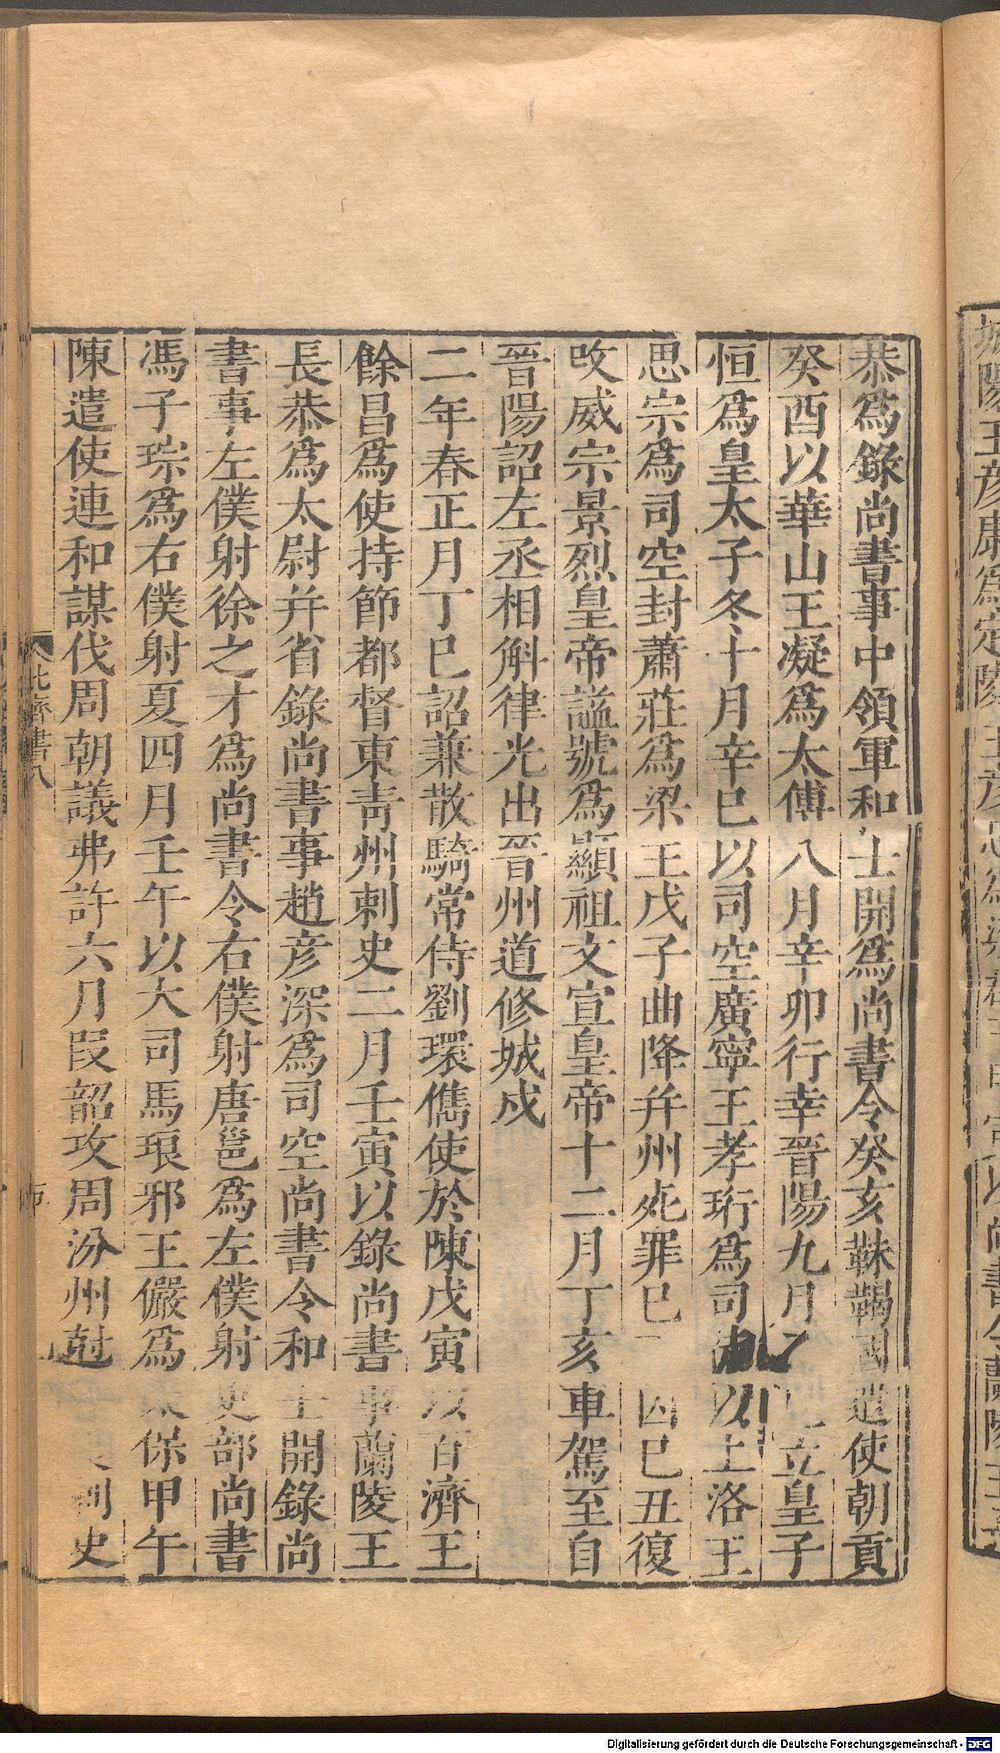 恭爲錄尚書事中領軍和士開爲尚書令癸亥靺鞨國遣使朝貢
癸酉以華山王凝爲太傅八月辛卯行幸晉陽九月乙 立皇子
恒爲皇太子冬十月辛巳以司空廣寧王孝珩爲司 以上洛王
思宗爲司空封蕭莊爲梁王戊子曲降并州死罪已 囚己丑復
攺威宗景烈皇帝謚號爲顯祖文宣皇帝十二月丁亥車駕至自
晉陽詔左丞相斛律光出晉州道修城戍
二年春正月丁巳詔兼散騎常侍劉環儁使於陳戊寅以百濟王
餘昌爲使持節都督東青州刺史二月壬寅以錄尚書事蘭陵王
長恭爲太尉并省錄尚書事趙彦深爲司空尚書令和士開錄尚
書事左僕射徐之才爲尚書令右僕射唐邕爲左僕射吏部尚書
馮子琮爲右僕射夏四月壬午以大司馬琅邪王儼爲太保甲午
陳遣使連和謀伐周朝議弗許六月叚韶攻周汾州尅 刺史
北齊書八
城陽王彥康爲定陵王彥忠爲 尚書令蘭陵王
Digitalisierung gefördert durch die Deutsche Forschungsgemeinschaft - DFG